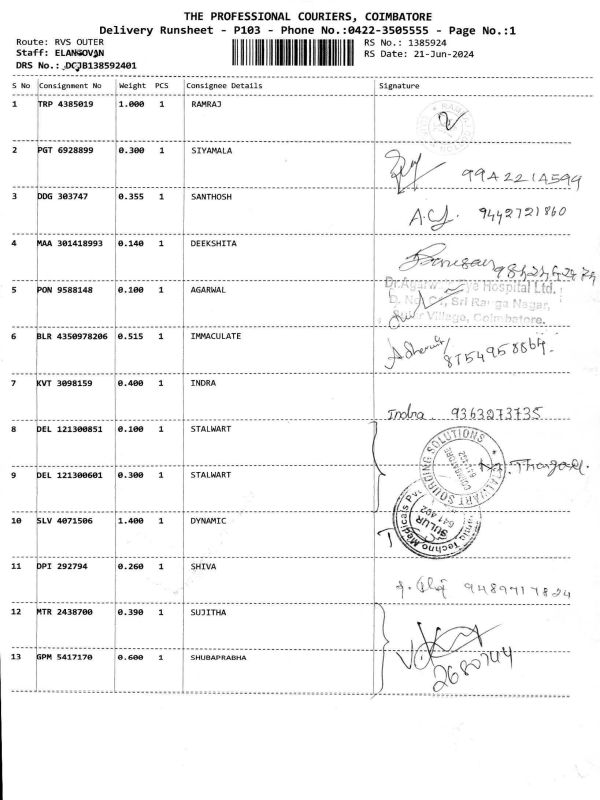 THE PROFESSIONAL COURIERS, COIMBATORE
Delivery Runsheet - P103 - Phone No.:0422-3505555 - Page No.:1
Route: RVS OUTER
RS No.: 1385924
Staff: ELANGOVAN
RS Date: 21-Jun-2024
DRS No.: DCJB138592401
S No Consignment No Weight PCS Consignee Details Signature
1 TRP 4385019 1.000 1 RAMRAJ
2 PGT 6928899 0.300 1 SIYAMALA
3 DDG 303747 0.355 1 SANTHOSH A.C.J. 9442721860
4 MAA 301418993 0.140 1 DEEKSHITA
5 PON 9588148 0.100 1 AGARWAL Dr.Agarwal Eye Hospital Ltd.
Sri Ranga Nagar,
Sulur Village, Coimbatore.
6 BLR 4350978206 0.515 1 IMMACULATE 8754958864.
7 KVT 3098159 0.400 1 INDRA
Indra 9363273735
8 DEL 121300851 0.100 1 STALWART
STALWART SOURCING SOLUTIONS
COIMBATORE
9 DEL 121300601 0.300 1 STALWART
10 SLV 4071506 1.400 1 DYNAMIC
Dynamic Techno Medicals Pvt
SULUR
641 402
11 DPI 292794 0.260 1 SHIVA 9489717824
12 MTR 2438700 0.390 1 SUJITHA
13 GPM 5417170 0.600 1 SHUBAPRABHA
2680744